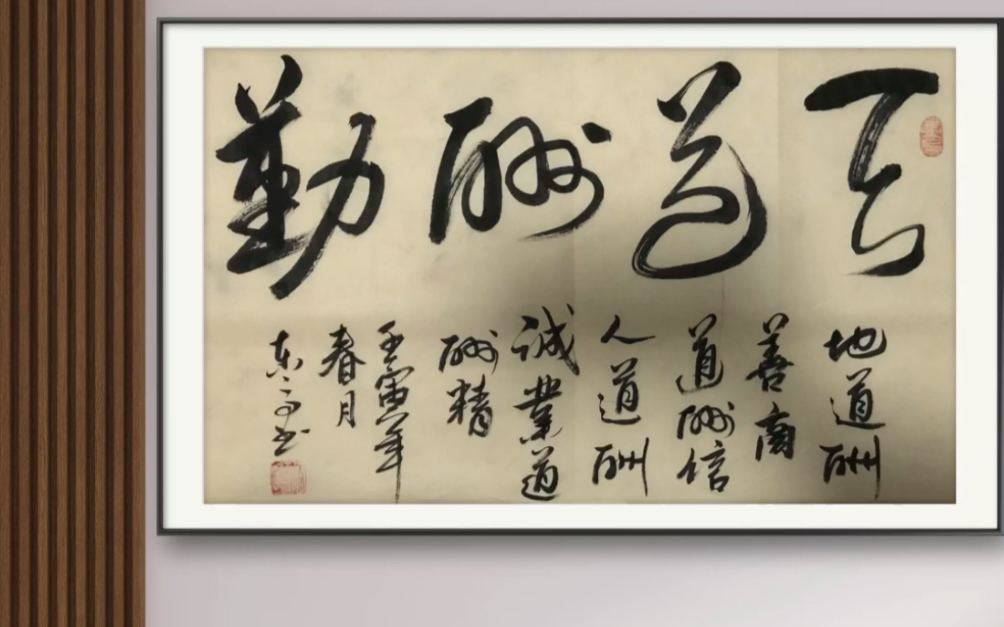 天道酬勤
地道酬
善商
道酬信
人道酬
誠業道
酬精
壬寅年
春月